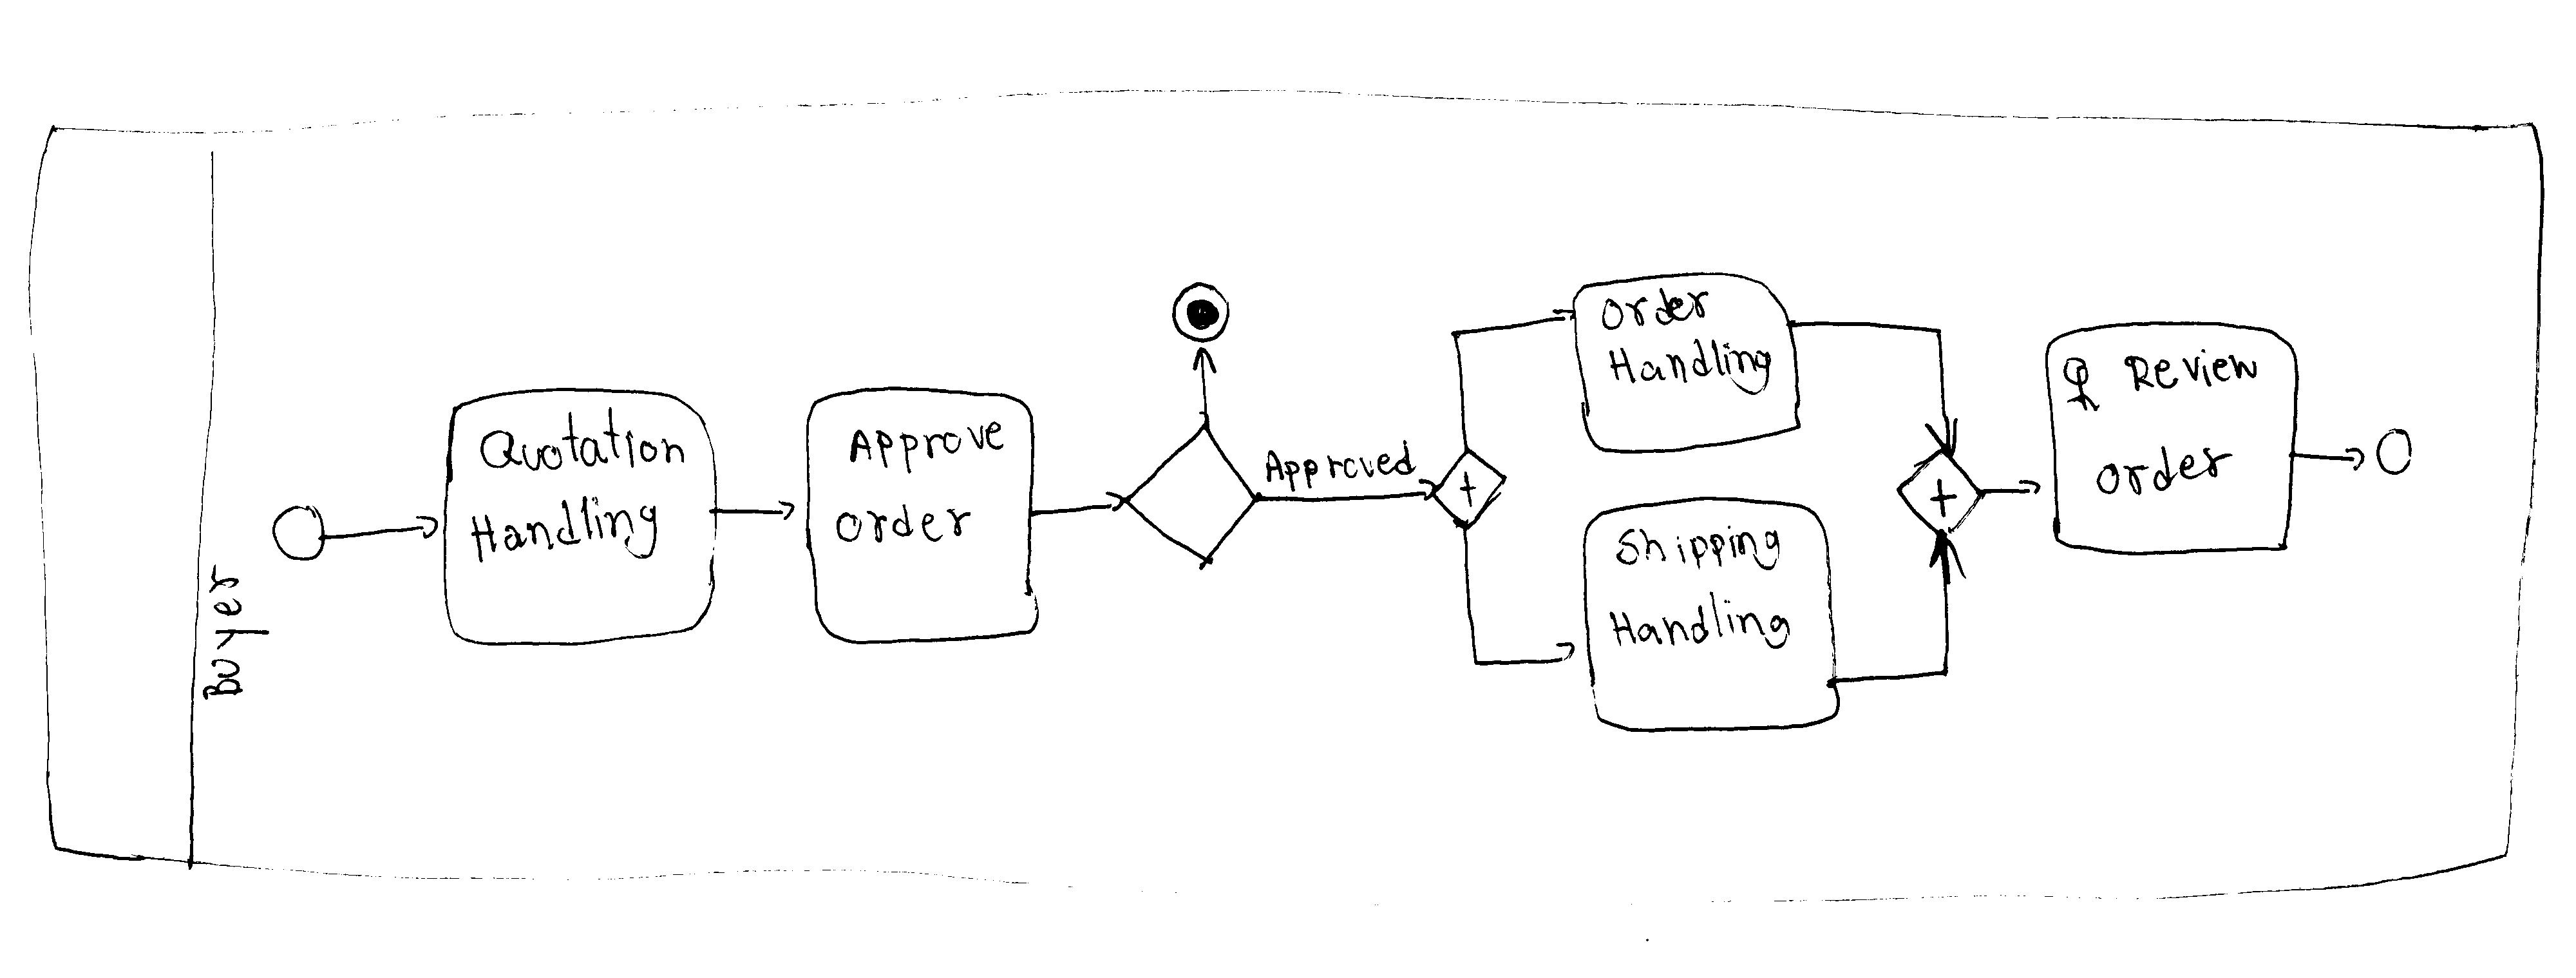 Buyer
Quotation
Handling
Approve
order
Approved
+
order
Handling
Shipping
Handling
+
Review
order